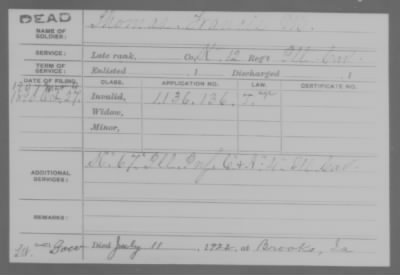 DEAD
NAME OF SOLDIER: Thomas, Francis M.
SERVICE: Late rank, Co. K, 12 Reg't Ill. Cav.
TERM OF SERVICE: Enlisted , 1 Discharged , 1
DATE OF FILING. CLASS. APPLICATION NO. LAW. CERTIFICATE NO.
Invalid, 1.136.136.
Widow,
Minor,
ADDITIONAL SERVICES: K. 67" Ill. Inf.
REMARKS:
Died July 11, 1922, at Brooks, Ia